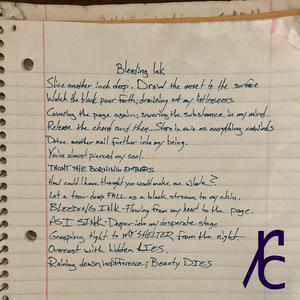 Bleeding Ink
Slice another inch deep. Draw the onset to the surface
Watch the black pour forth; draining out my bitterness.
Covering the page again; smearing the substance in my mind.
Release the chord and then... Stare in awe as everything unwinds
Drive another nail further into my being.
You've almost pierced my soul.
TAUNT THE BURNING EMBERS
How could I have thought you would make me whole?
Let a tear-drop FALL as a black stream to my chin.
BLEEDING INK - Flowing from my heart to the page.
AS I SINK - Deeper into my desperate stage.
Grasping tight to MY SHELTER from the night
Overcast with hidden LIES.
Raining down indifference; Beauty DIES
rc